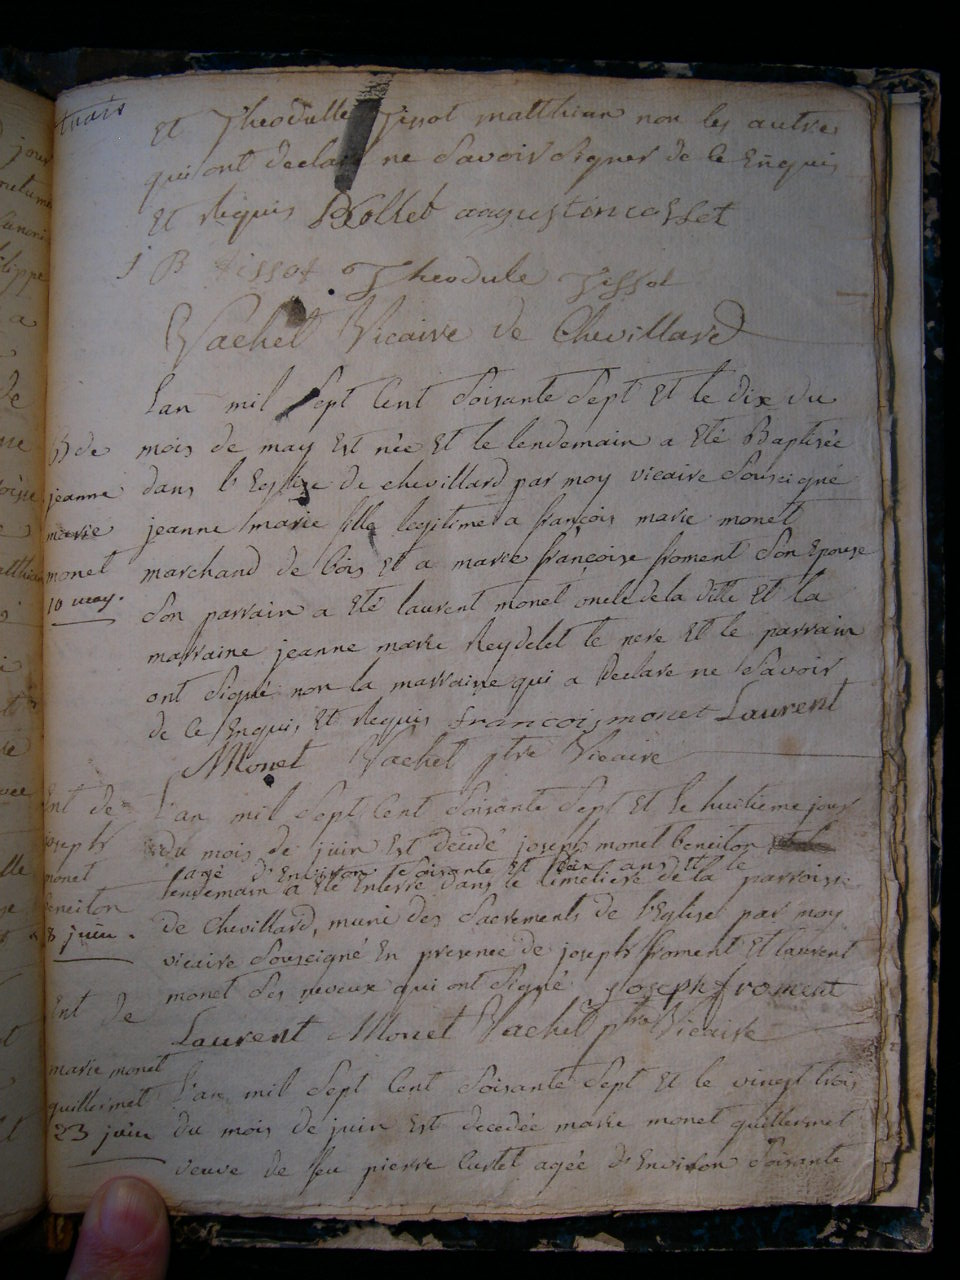 trois
Et Theodulle Tissot matthian non les autres
qui ont declaré ne Savoir Signer de ce Enquis
Et Requis B Collet augustin collet
J B tissot Theodule Tissot
Vachel Vicaire de Chevillard
Lan mil Sept Cent Soisante Sept Et le dix du
mois de may Est née Et le lendemain a Eté Baptisée
dans l'Eglise de chevillard par moy vicaire Souseigné
jeanne marie fille legitime a françois marie monet
marchand de bois Et a marie françoise froment Son Epouse
Son parrain a Eté laurent monet oncle de la ditte Et la
marraine jeanne marie Reydelet le pere Et le parrain
ont Signé non la marraine qui a Declare ne Savoir
de ce Enquis Et Requis francois monet Laurent
Monet Vachel ptre Vicaire
B de
jeanne
marie
monet
10 may.
L'an mil Sept Cent Soisante Sept Et le huitieme jour
du mois de juin Est decidé joseph monet beneiton
agé d'Environ Soisante Et dix ans Et le
lendemain a Eté Enterré dans le Cimetiere de la parroisse
de Chevillard, muni des Sacrements de l'Eglise par moy
vicaire Souseigné En presence de joseph froment Et laurent
monet Ses neveux qui ont Signé joseph froment
Laurent Monet Vachel ptre Vicaire
Ent de
joseph
monet
beneiton
8 juin.
L'an mil Sept Cent Soisante Sept Et le vingt trois
du mois de juin Est decedée marie monet guillermet
veuve de feu pierre Curtet agée d'Environ Soisante
Ent de
marie monet
guillermet
23 juin